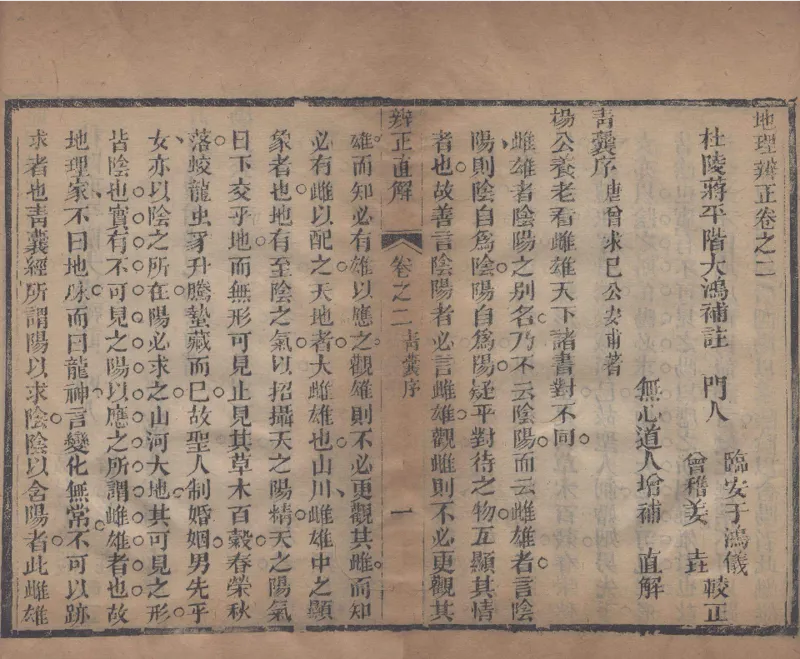 地理辨正卷之二
杜陵蔣平階大鴻補註　門人
臨安于鴻儀
會稽姜　垚
較正
無心道人增補　直解
青囊序 唐曾求已公安甫著
楊公養老看雌雄天下諸書對不同
雌雄者陰陽之别名乃不云陰陽而云雌雄者言陰
陽則陰自爲陰陽自爲陽疑乎對待之物互顯其情
者也故善言陰陽者必言雌雄觀雌則不必更觀其
辨正直解　卷之二 青囊序　一
雄而知必有雄以應之觀雄則不必更觀其雌而知
必有雌以配之天地者大雌雄也山川雌雄中之顯
象者也地有至陰之氣以招攝天之陽精天之陽氣
日下交乎地而無形可見止見其草木百穀春榮秋
落蛟龍虫豸升騰蟄藏而巳故聖人制婚姻男先乎
女亦以陰之所在陽必求之山河大地其可見之形
皆陰也實有不可見之陽以應之所謂雌雄者也故
地理家不曰地脉而曰龍神言變化無常不可以跡
求者也青囊經所謂陽以求陰陰以含陽者此雌雄